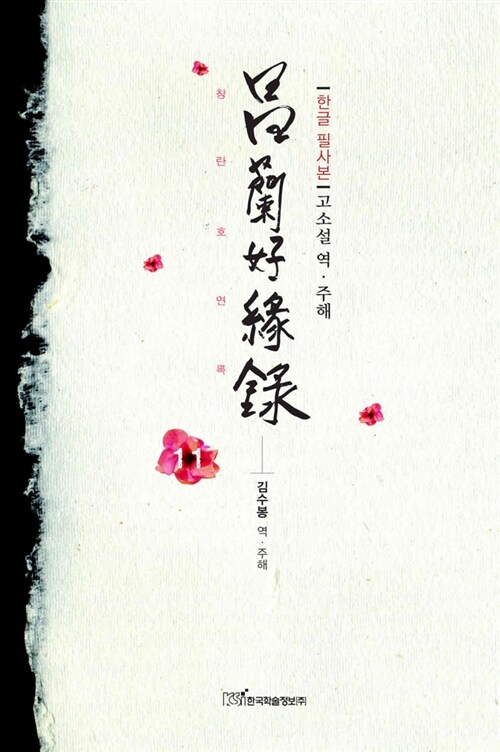 [한글 필사본] 고소설 역·주해
昌蘭好緣錄
창란호연록
11
김수봉 역·주해
한국학술정보(주)